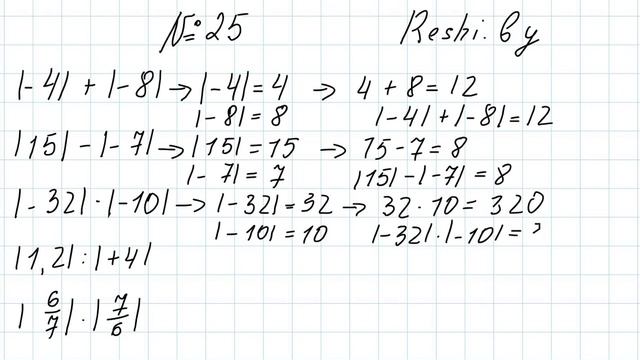 № 25 Reshi.by
|-4| + |-8| → |-4| = 4 → 4 + 8 = 12
|-8| = 8 |-4| + |-8| = 12
|15| - |-7| → |15| = 15 → 15 - 7 = 8
|-7| = 7 |15| - |-7| = 8
|-32| · |-10| → |-32| = 32 → 32 · 10 = 320
|-10| = 10 |-32| · |-10| =
|1,2| : |+4|
|6/7| · |7/6|